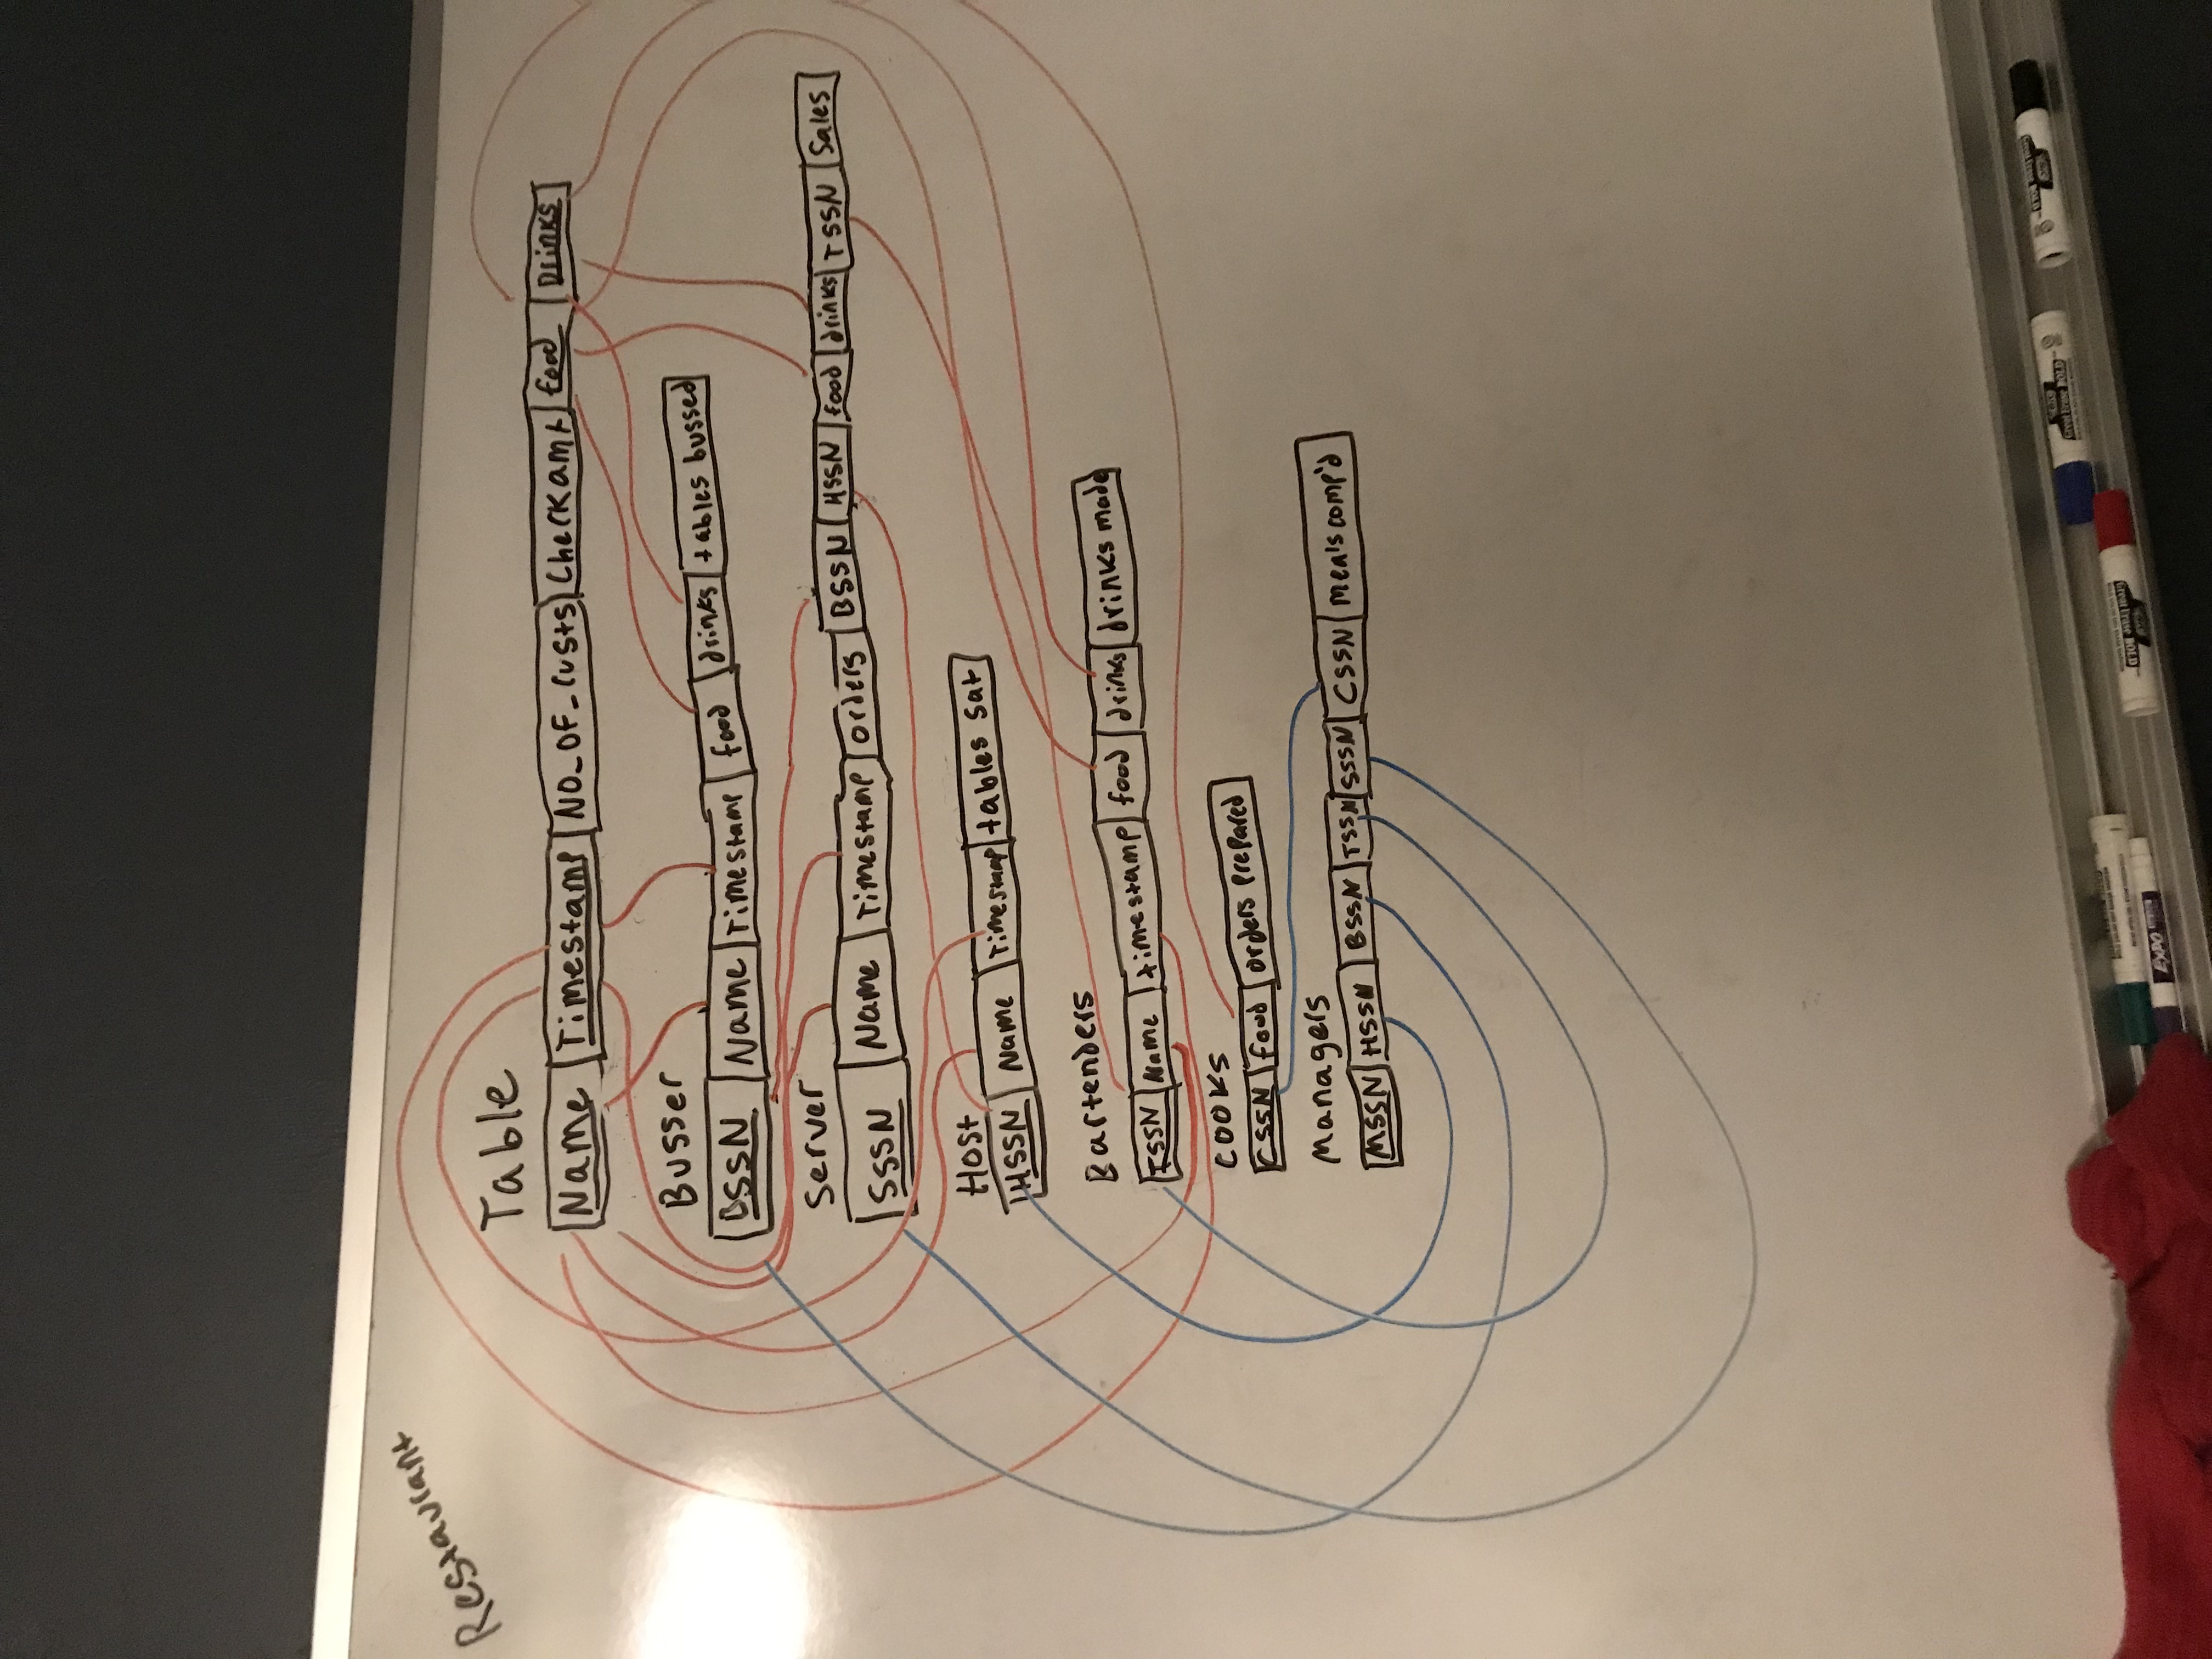 Restaurant
Table
Name Timestamp NO_OF_Custs Checkamt food Drinks
Busser
BSSN Name Timestamp food drinks tables bussed
Server
SSSN Name Timestamp orders BSSN HSSN food drinks TSSN Sales
Host
HSSN Name Timestamp tables sat
Bartenders
TSSN Name timestamp food drinks drinks made
COOKS
CSSN food orders prepared
Managers
MSSN HSSN BSSN TSSN SSSN CSSN mea's comp'd
Great Erase BOLD
Great Erase BOLD
Great Erase BOLD
EXPO